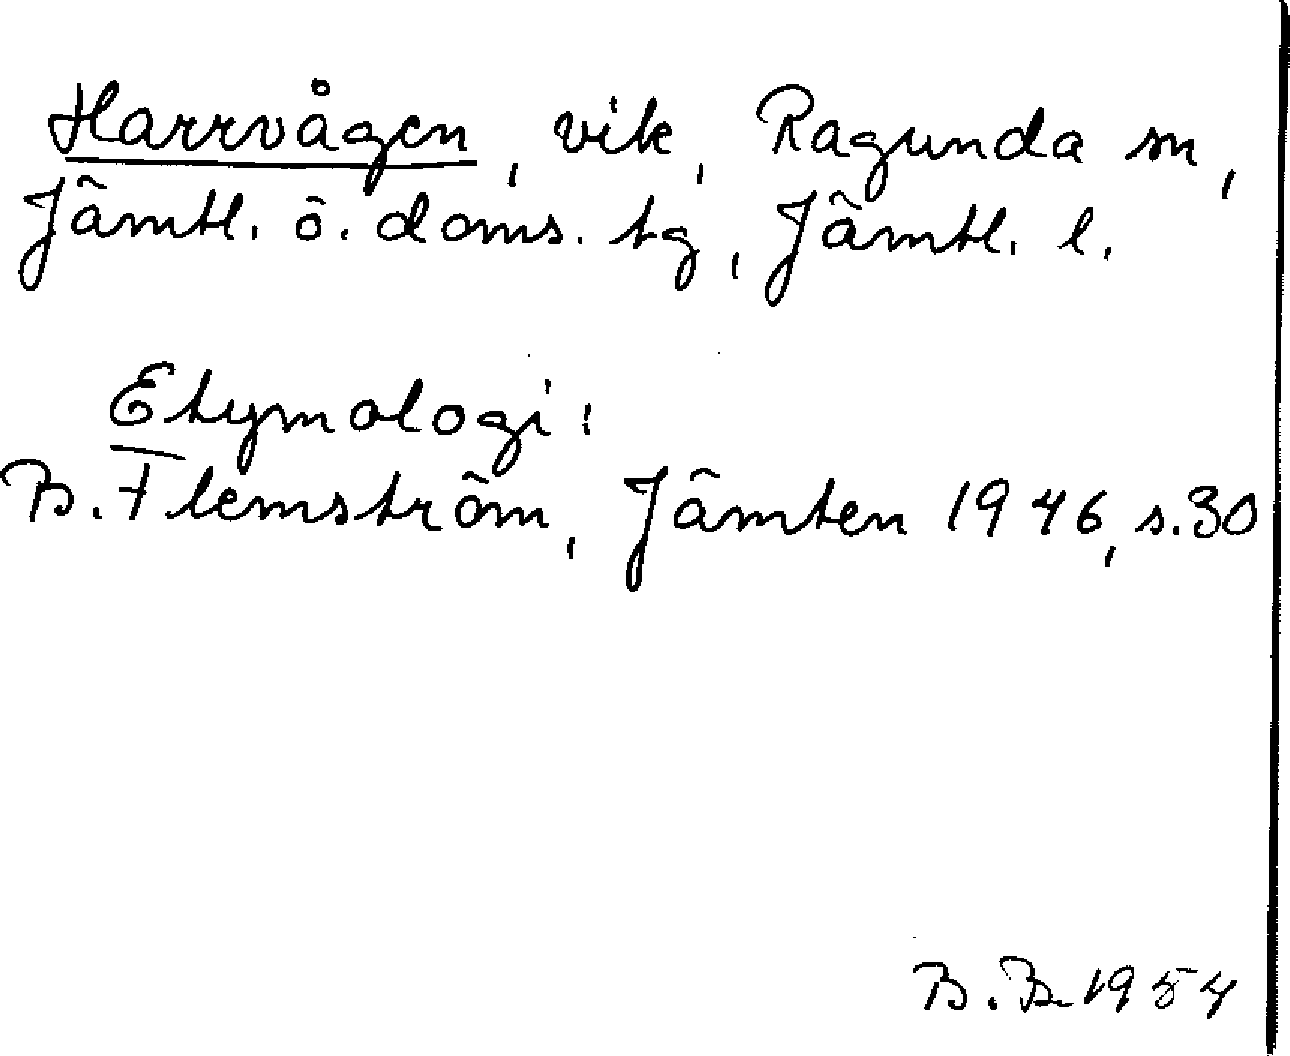 Harrvågen, vik, Ragunda sn,
Jämtl. ö. doms. tg, Jämtl. l.
Etymologi:
B. Flemström, Jämten 1946, s. 30
B. B. 1954